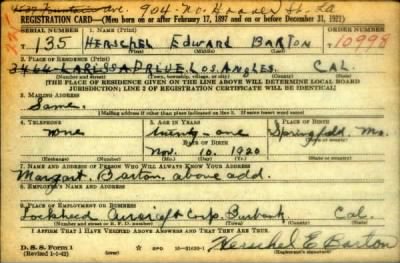 904 - No. Hoover St. La
REGISTRATION CARD—(Men born on or after February 17, 1897 and on or before December 31, 1921)
SERIAL NUMBER 1. NAME (Print) ORDER NUMBER
T 135 Herschel Edward Barton 10998
(First) (Middle) (Last)
2. PLACE OF RESIDENCE (Print)
3464 LARISSA DRIVE, LOS ANGELES. CAL.
(Number and street) (Town, township, village, or city) (County) (State)
[THE PLACE OF RESIDENCE GIVEN ON THE LINE ABOVE WILL DETERMINE LOCAL BOARD
JURISDICTION; LINE 2 OF REGISTRATION CERTIFICATE WILL BE IDENTICAL]
3. MAILING ADDRESS
Same.
[Mailing address if other than place indicated on line 2. If same insert word same]
4. TELEPHONE 5. AGE IN YEARS 6. PLACE OF BIRTH
none twenty-one Springfield, Mo.
DATE OF BIRTH (Town or county)
Nov. 10. 1920
(Exchange) (Number) (Mo.) (Day) (Yr.) (State or country)
7. NAME AND ADDRESS OF PERSON WHO WILL ALWAYS KNOW YOUR ADDRESS
Margart. Barton. above add.
8. EMPLOYER'S NAME AND ADDRESS
9. PLACE OF EMPLOYMENT OR BUSINESS
Lockheed Aircraft Corp. Burbank Cal.
(Number and street or R. F. D. number) (Town) (County) (State)
I AFFIRM THAT I HAVE VERIFIED ABOVE ANSWERS AND THAT THEY ARE TRUE.
D. S. S. Form 1 GPO 16—21630-1 Herschel E. Barton
(Revised 1-1-42) (Registrant's signature)